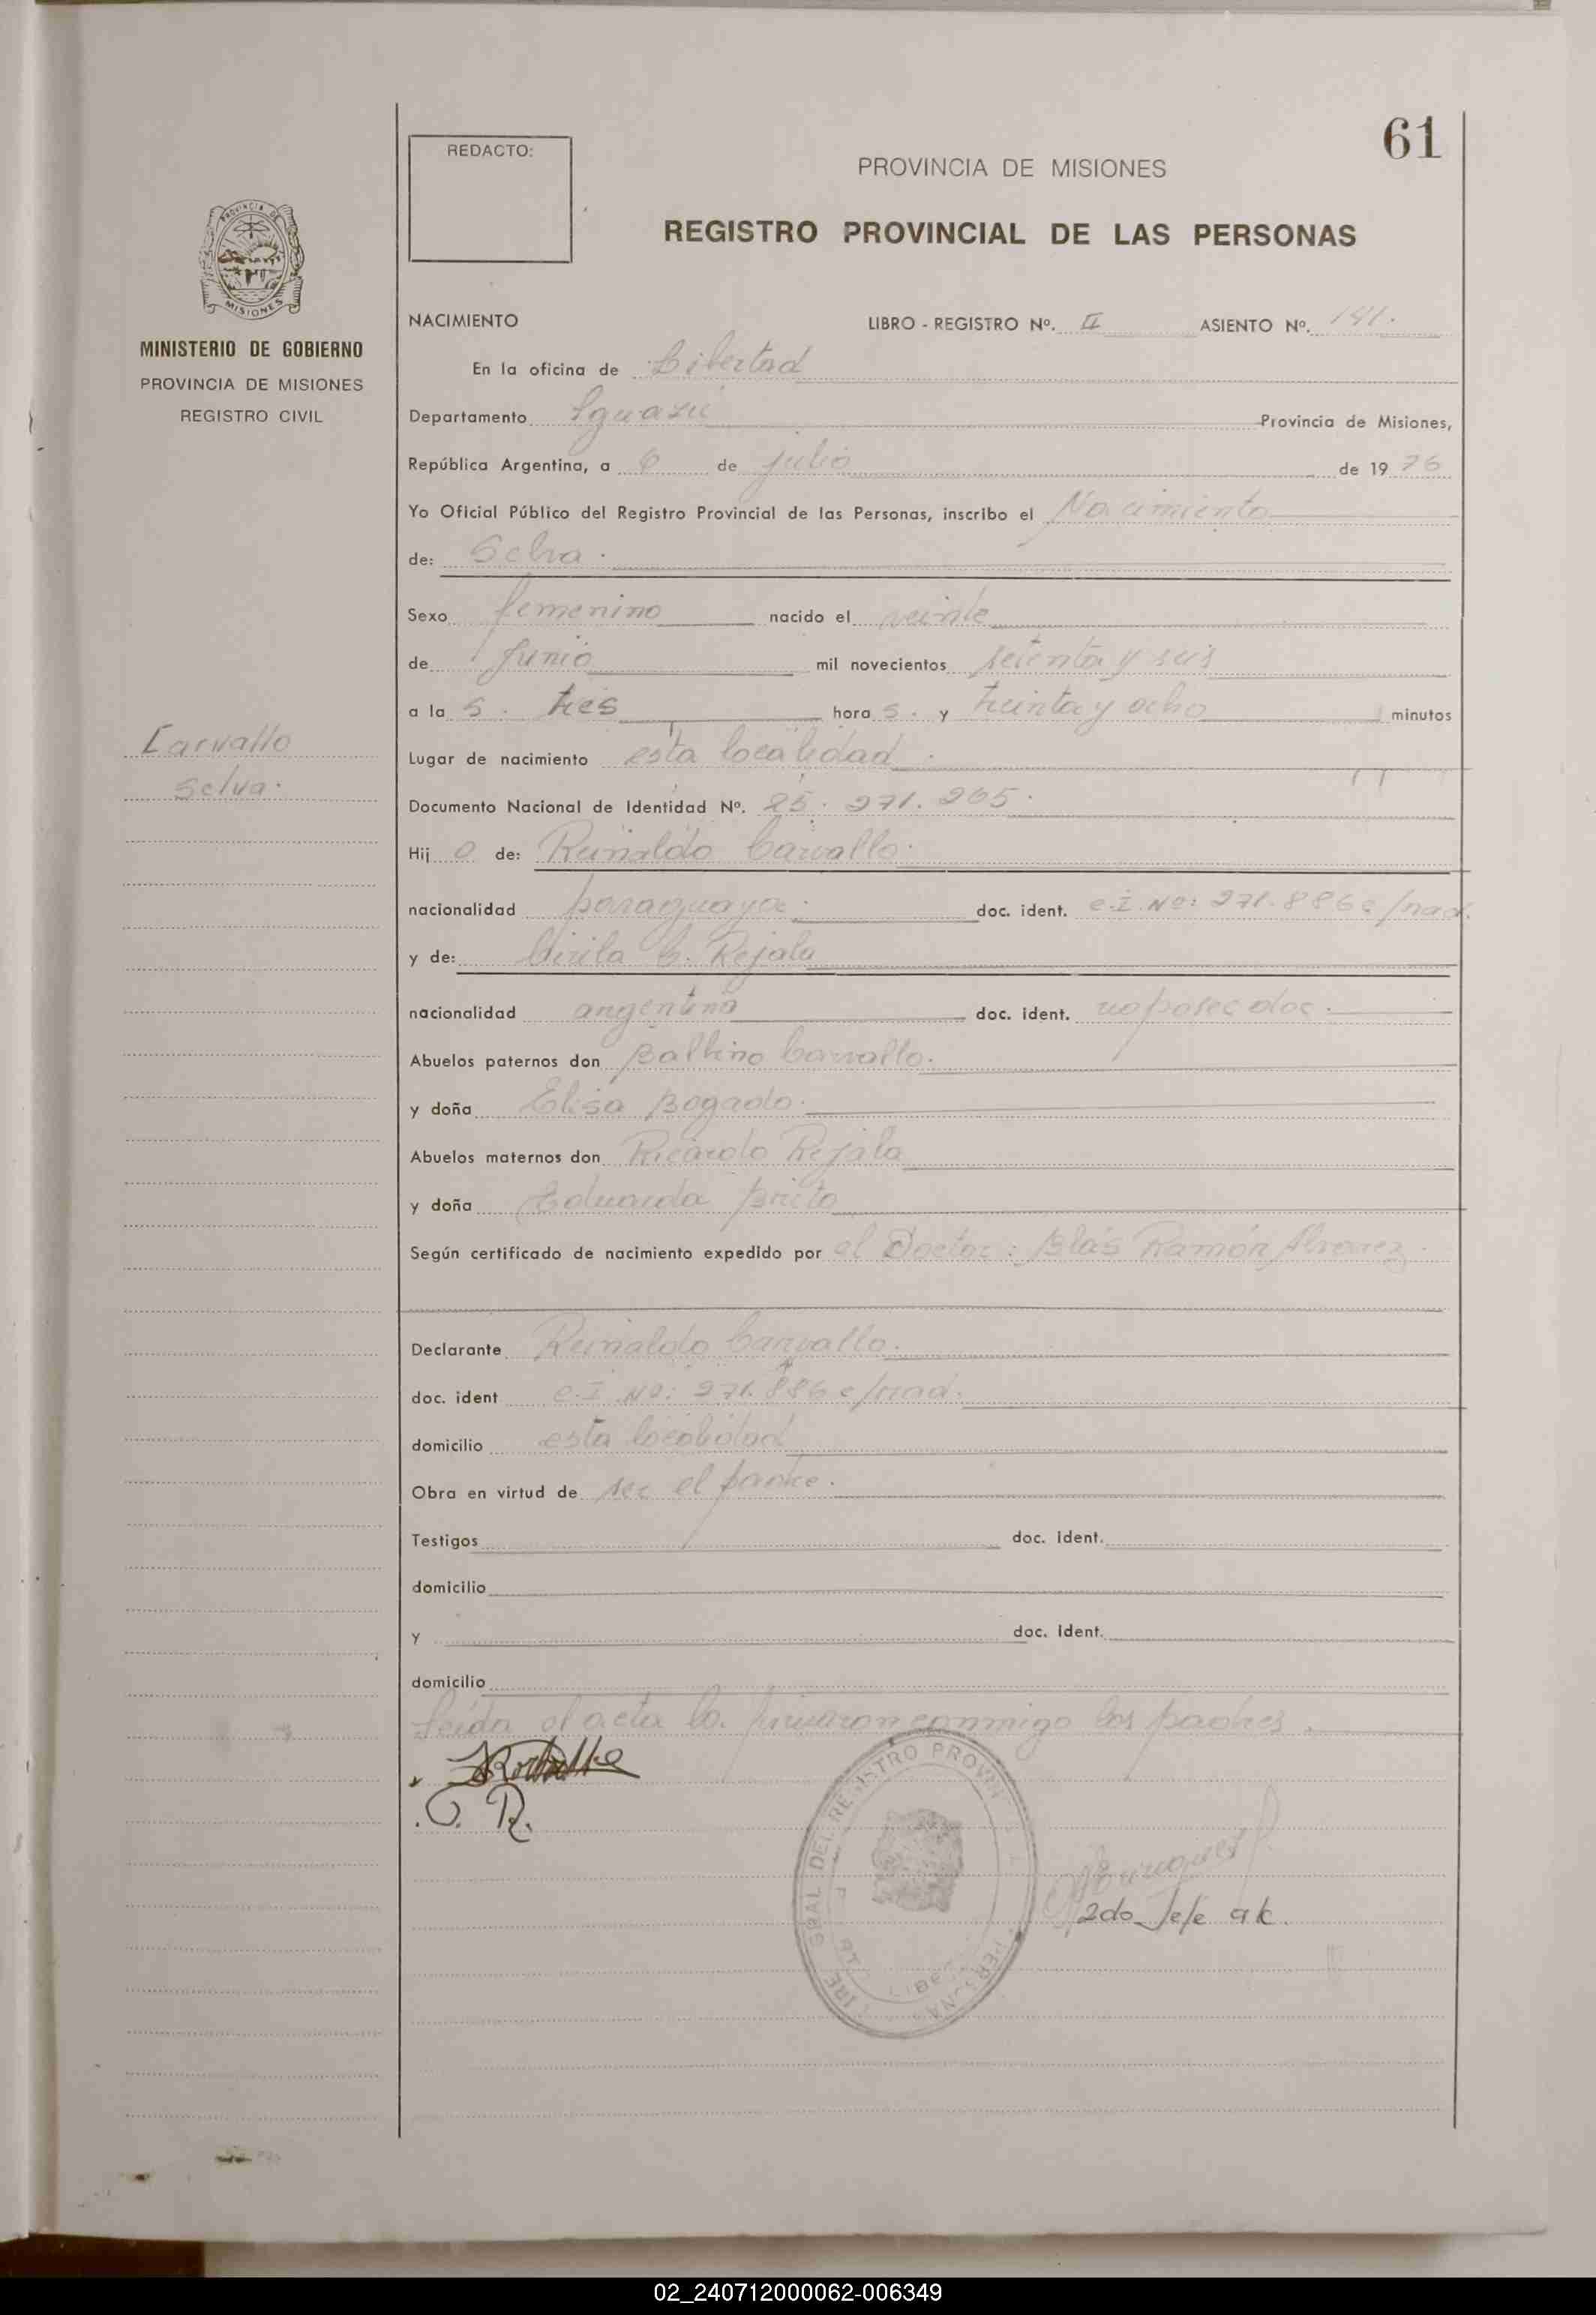 61
REDACTO:
PROVINCIA DE MISIONES
REGISTRO PROVINCIAL DE LAS PERSONAS
MINISTERIO DE GOBIERNO
PROVINCIA DE MISIONES
REGISTRO CIVIL
NACIMIENTO LIBRO - REGISTRO Nº. II ASIENTO Nº.
En la oficina de Libertad
Departamento Iguazú Provincia de Misiones,
República Argentina, a 6 de julio de 1976
Yo Oficial Público del Registro Provincial de las Personas, inscribo el Nacimiento
de: Selva.
Sexo femenino nacido el veinte
de Junio mil novecientos setenta y seis
a la s. tres hora s. y treinta y ocho minutos
Carvallo
Selva.
Lugar de nacimiento esta localidad.
Documento Nacional de Identidad Nº. 25.271.205.
Hij a de: Reinaldo Carvallo.
nacionalidad paraguaya. doc. ident. C.I. Nº: 271.886 c/nad.
y de: Cirila C. Rejala
nacionalidad argentina doc. ident. no posee doc.
Abuelos paternos don Balbino Carvallo.
y doña Elisa Bogado.
Abuelos maternos don Ricardo Rejala
y doña Eduarda Brito
Según certificado de nacimiento expedido por el Doctor: Blás Ramón Alvarez.
Declarante Reinaldo Carvallo.
doc. ident C.I. Nº: 271.886 c/nad.
domicilio esta localidad
Obra en virtud de ser el padre.
Testigos doc. ident.
domicilio
y doc. ident.
domicilio
Leída el acta la firmaron conmigo los padres.
C. R.
2do Jefe ak.
02_240712000062-006349